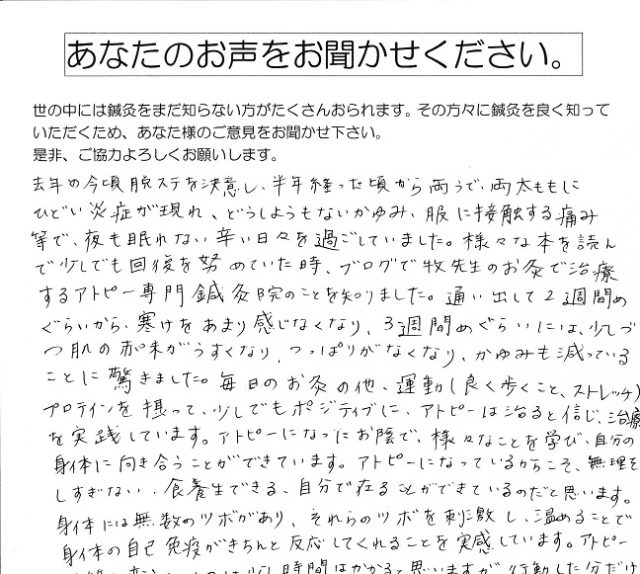 あなたのお声をお聞かせください。
世の中には鍼灸をまだ知らない方がたくさんおられます。その方々に鍼灸を良く知って
いただくため、あなた様のご意見をお聞かせ下さい。
是非、ご協力よろしくお願いします。
去年の今頃脱ステを決意し、半年経った頃から両うで、両太ももに
ひどい炎症が現れ、どうしようもないかゆみ、服に接触する痛み
等で、夜も眠れない辛い日々を過ごしていました。様々な本を読ん
で少しでも回復を努めていた時、ブログで牧先生のお灸で治療
するアトピー専門鍼灸院のことを知りました。通い出して2週間め
ぐらいから、寒けをあまり感じなくなり、3週間めぐらいには、少しづ
つ肌の赤味がうすくなり、つっぱりがなくなり、かゆみも減っている
ことに驚きました。毎日のお灸の他、運動(良く歩くこと、ストレッチ)
プロテインを摂って、少しでもポジティブに、アトピーは治ると信じ、治療
を実践しています。アトピーになったお陰で、様々なことを学び、自分の
身体に向き合うことができています。アトピーになっているからこそ、無理を
しすぎない、食養生できる、自分で在ることができているのだと思います。
身体には無数のツボがあり、それらのツボを刺激し、温めることで
身体の自己免疫がきちんと反応してくれることを実感しています。アトピー
は少し時間はかかると思いますが、行動した分だけ